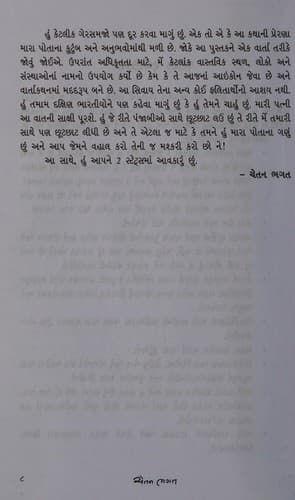 હું કેટલીક ગેરસમજો પણ દૂર કરવા માગું છું. એક તો એ કે આ કથાની પ્રેરણા
મારા પોતાના કુટુંબ અને અનુભવોમાંથી મળી છે. જોકે આ પુસ્તકને એક વાર્તા તરીકે
જોવું જોઈએ. ઉપરાંત અધિકૃતતા માટે, મેં કેટલાંક વાસ્તવિક સ્થળ, લોકો અને
સંસ્થાઓનાં નામનો ઉપયોગ કર્યો છે કેમ કે તે આજનાં આઇકોન જેવા છે અને
વાર્તાકથનમાં મદદરૂપ બને છે. આ સિવાય તેના અન્ય કોઈ ફલિતાર્થોનો આશય નથી.
હું તમામ દક્ષિણ ભારતીયોને પણ કહેવા માગું છું કે હું તેમને ચાહું છું. મારી પત્ની
આ વાતની સાક્ષી પૂરશે. હું જે રીતે પંજાબીઓ સાથે છૂટછાટ લઉં છું તે રીતે મેં તમારી
સાથે પણ છૂટછાટ લીધી છે અને તે એટલા જ માટે કે તમને હું મારા પોતાના ગણું
છું અને આપ જેમને વહાલ કરો તેની જ મશ્કરી કરો છો ને!
આ સાથે, હું આપને 2 સ્ટેટ્સમાં આવકારું છું.
– ચેતન ભગત
૮
ચેતન ભગત